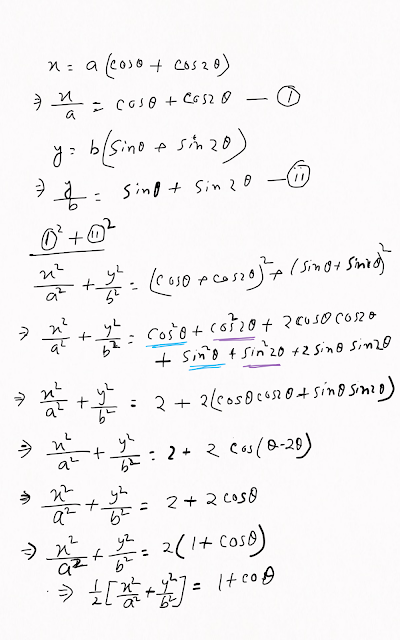 x = a(cosθ + cos2θ)
⇒ x/a = cosθ + cos2θ — (i)
y = b(sinθ + sin2θ)
⇒ y/b = sinθ + sin2θ — (ii)
(i)² + (ii)²
x²/a² + y²/b² = (cosθ + cos2θ)² + (sinθ + sin2θ)²
⇒ x²/a² + y²/b² = cos²θ + cos²2θ + 2cosθ cos2θ
+ sin²θ + sin²2θ + 2sinθ sin2θ
⇒ x²/a² + y²/b² = 2 + 2(cosθcos2θ + sinθ sin2θ)
⇒ x²/a² + y²/b² = 2 + 2 cos(θ-2θ)
⇒ x²/a² + y²/b² = 2 + 2cosθ
⇒ x²/a² + y²/b² = 2(1 + cosθ)
⇒ 1/2[x²/a² + y²/b²] = 1 + cosθ